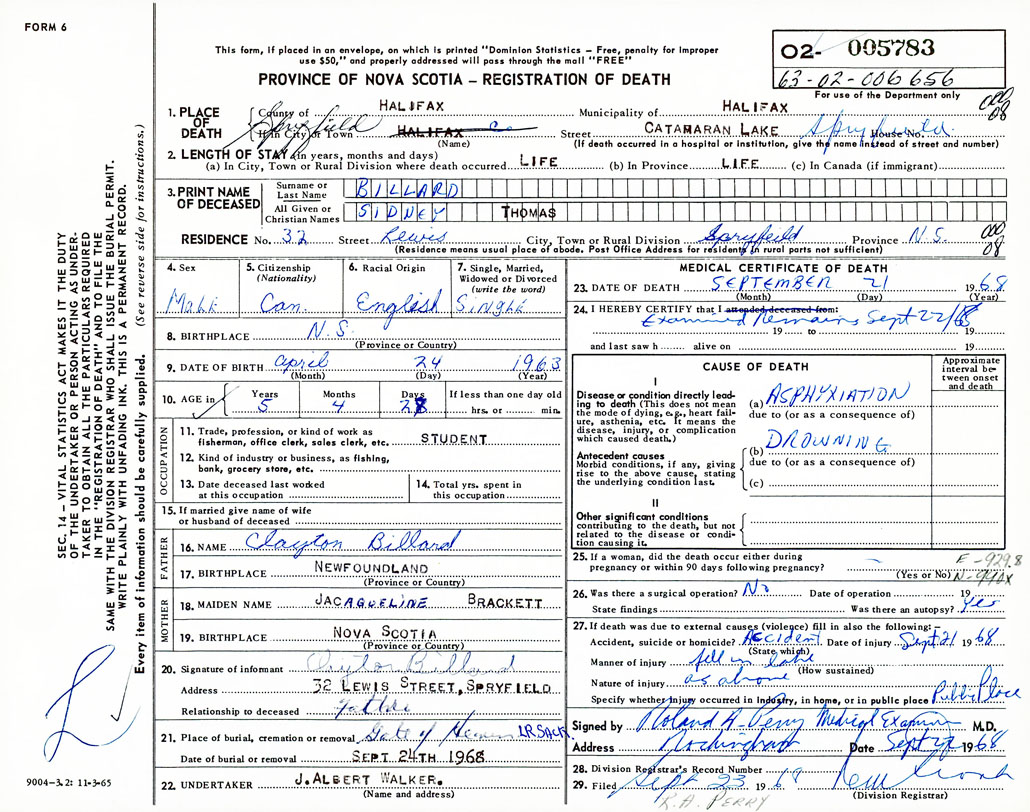 FORM 6
This form, if placed in an envelope, on which is printed "Dominion Statistics – Free, penalty for improper
use $50," and properly addressed will pass through the mail "FREE"
PROVINCE OF NOVA SCOTIA – REGISTRATION OF DEATH
02- 005783
63-02-006656
For use of the Department only
1. PLACE OF DEATH
County of HALIFAX Municipality of HALIFAX
If in City or Town Spryfield HALIFAX Co Street CATAMARAN LAKE Spryfield House No.
(Name) (If death occurred in a hospital or institution, give the name instead of street and number)
000
08
2. LENGTH OF STAY (in years, months and days)
(a) In City, Town or Rural Division where death occurred LIFE (b) In Province LIFE (c) In Canada (if immigrant)
3. PRINT NAME OF DECEASED
Surname or Last Name BILLARD
All Given or Christian Names SIDNEY THOMAS
RESIDENCE No. 32 Street Lewis City, Town or Rural Division Spryfeild Province N.S.
(Residence means usual place of abode. Post Office Address for residents in rural parts not sufficient)
000
08
4. Sex Male
5. Citizenship (Nationality) Can.
6. Racial Origin English
7. Single, Married, Widowed or Divorced (write the word) Single
8. BIRTHPLACE N.S.
(Province or Country)
9. DATE OF BIRTH April 24 1963
(Month) (Day) (Year)
10. AGE in Years 5 Months 4 Days 28 If less than one day old hrs. or min.
OCCUPATION
11. Trade, profession, or kind of work as fisherman, office clerk, sales clerk, etc. STUDENT
12. Kind of industry or business, as fishing, bank, grocery store, etc.
13. Date deceased last worked at this occupation
14. Total yrs. spent in this occupation
15. If married give name of wife or husband of deceased
FATHER
16. NAME Clayton Billard
17. BIRTHPLACE NEWFOUNDLAND
(Province or Country)
MOTHER
18. MAIDEN NAME JACAQUELINE BRACKETT
19. BIRTHPLACE NOVA SCOTIA
(Province or Country)
20. Signature of informant Clayton Billard
Address 32 LEWIS STREET, SPRYFIELD
Relationship to deceased Father
21. Place of burial, cremation or removal Gate of Heaven LR SACK
Date of burial or removal SEPT 24TH 1968
22. UNDERTAKER J. ALBERT WALKER.
(Name and address)
MEDICAL CERTIFICATE OF DEATH
23. DATE OF DEATH SEPTEMBER 21 1968
(Month) (Day) (Year)
24. I HEREBY CERTIFY that I attended deceased from:
Examined Remains Sept 22/68
19 to 19
and last saw h alive on 19
CAUSE OF DEATH
Approximate interval between onset and death
I
Disease or condition directly leading to death (This does not mean the mode of dying, e.g., heart failure, asthenia, etc. It means the disease, injury, or complication which caused death.)
(a) ASPHYXIATION
due to (or as a consequence of)
Antecedent causes
Morbid conditions, if any, giving rise to the above cause, stating the underlying condition last.
(b) DROWNING
due to (or as a consequence of)
(c)
II
Other significant conditions
contributing to the death, but not related to the disease or condition causing it.
25. If a woman, did the death occur either during
pregnancy or within 90 days following pregnancy?
(Yes or No)
E-929.8
N-994X
26. Was there a surgical operation? No Date of operation 19
State findings Was there an autopsy? Yes
27. If death was due to external causes (violence) fill in also the following:
Accident, suicide or homicide? Accident Date of injury Sept 21 1968
(State which)
Manner of injury fell in lake
(How sustained)
Nature of injury as above
Specify whether injury occurred in Industry, in home, or in public place Public Place
Signed by Roland A. Perry Medical Examiner M.D.
Address Rockingham Date Sept 22 1968
28. Division Registrar's Record Number
29. Filed Sept 23 1968
(Division Registrar)
R.A. PERRY
SEC. 14 – VITAL STATISTICS ACT MAKES IT THE DUTY
OF THE UNDERTAKER OR PERSON ACTING AS UNDER-
TAKER TO OBTAIN ALL THE PARTICULARS REQUIRED
IN THE "REGISTRATION OF DEATH" AND TO FILE THE
SAME WITH THE DIVISION REGISTRAR WHO SHALL ISSUE THE BURIAL PERMIT.
WRITE PLAINLY WITH UNFADING INK. THIS IS A PERMANENT RECORD.
Every item of information should be carefully supplied. (See reverse side for instructions.)
9004-3.2: 11-3-65